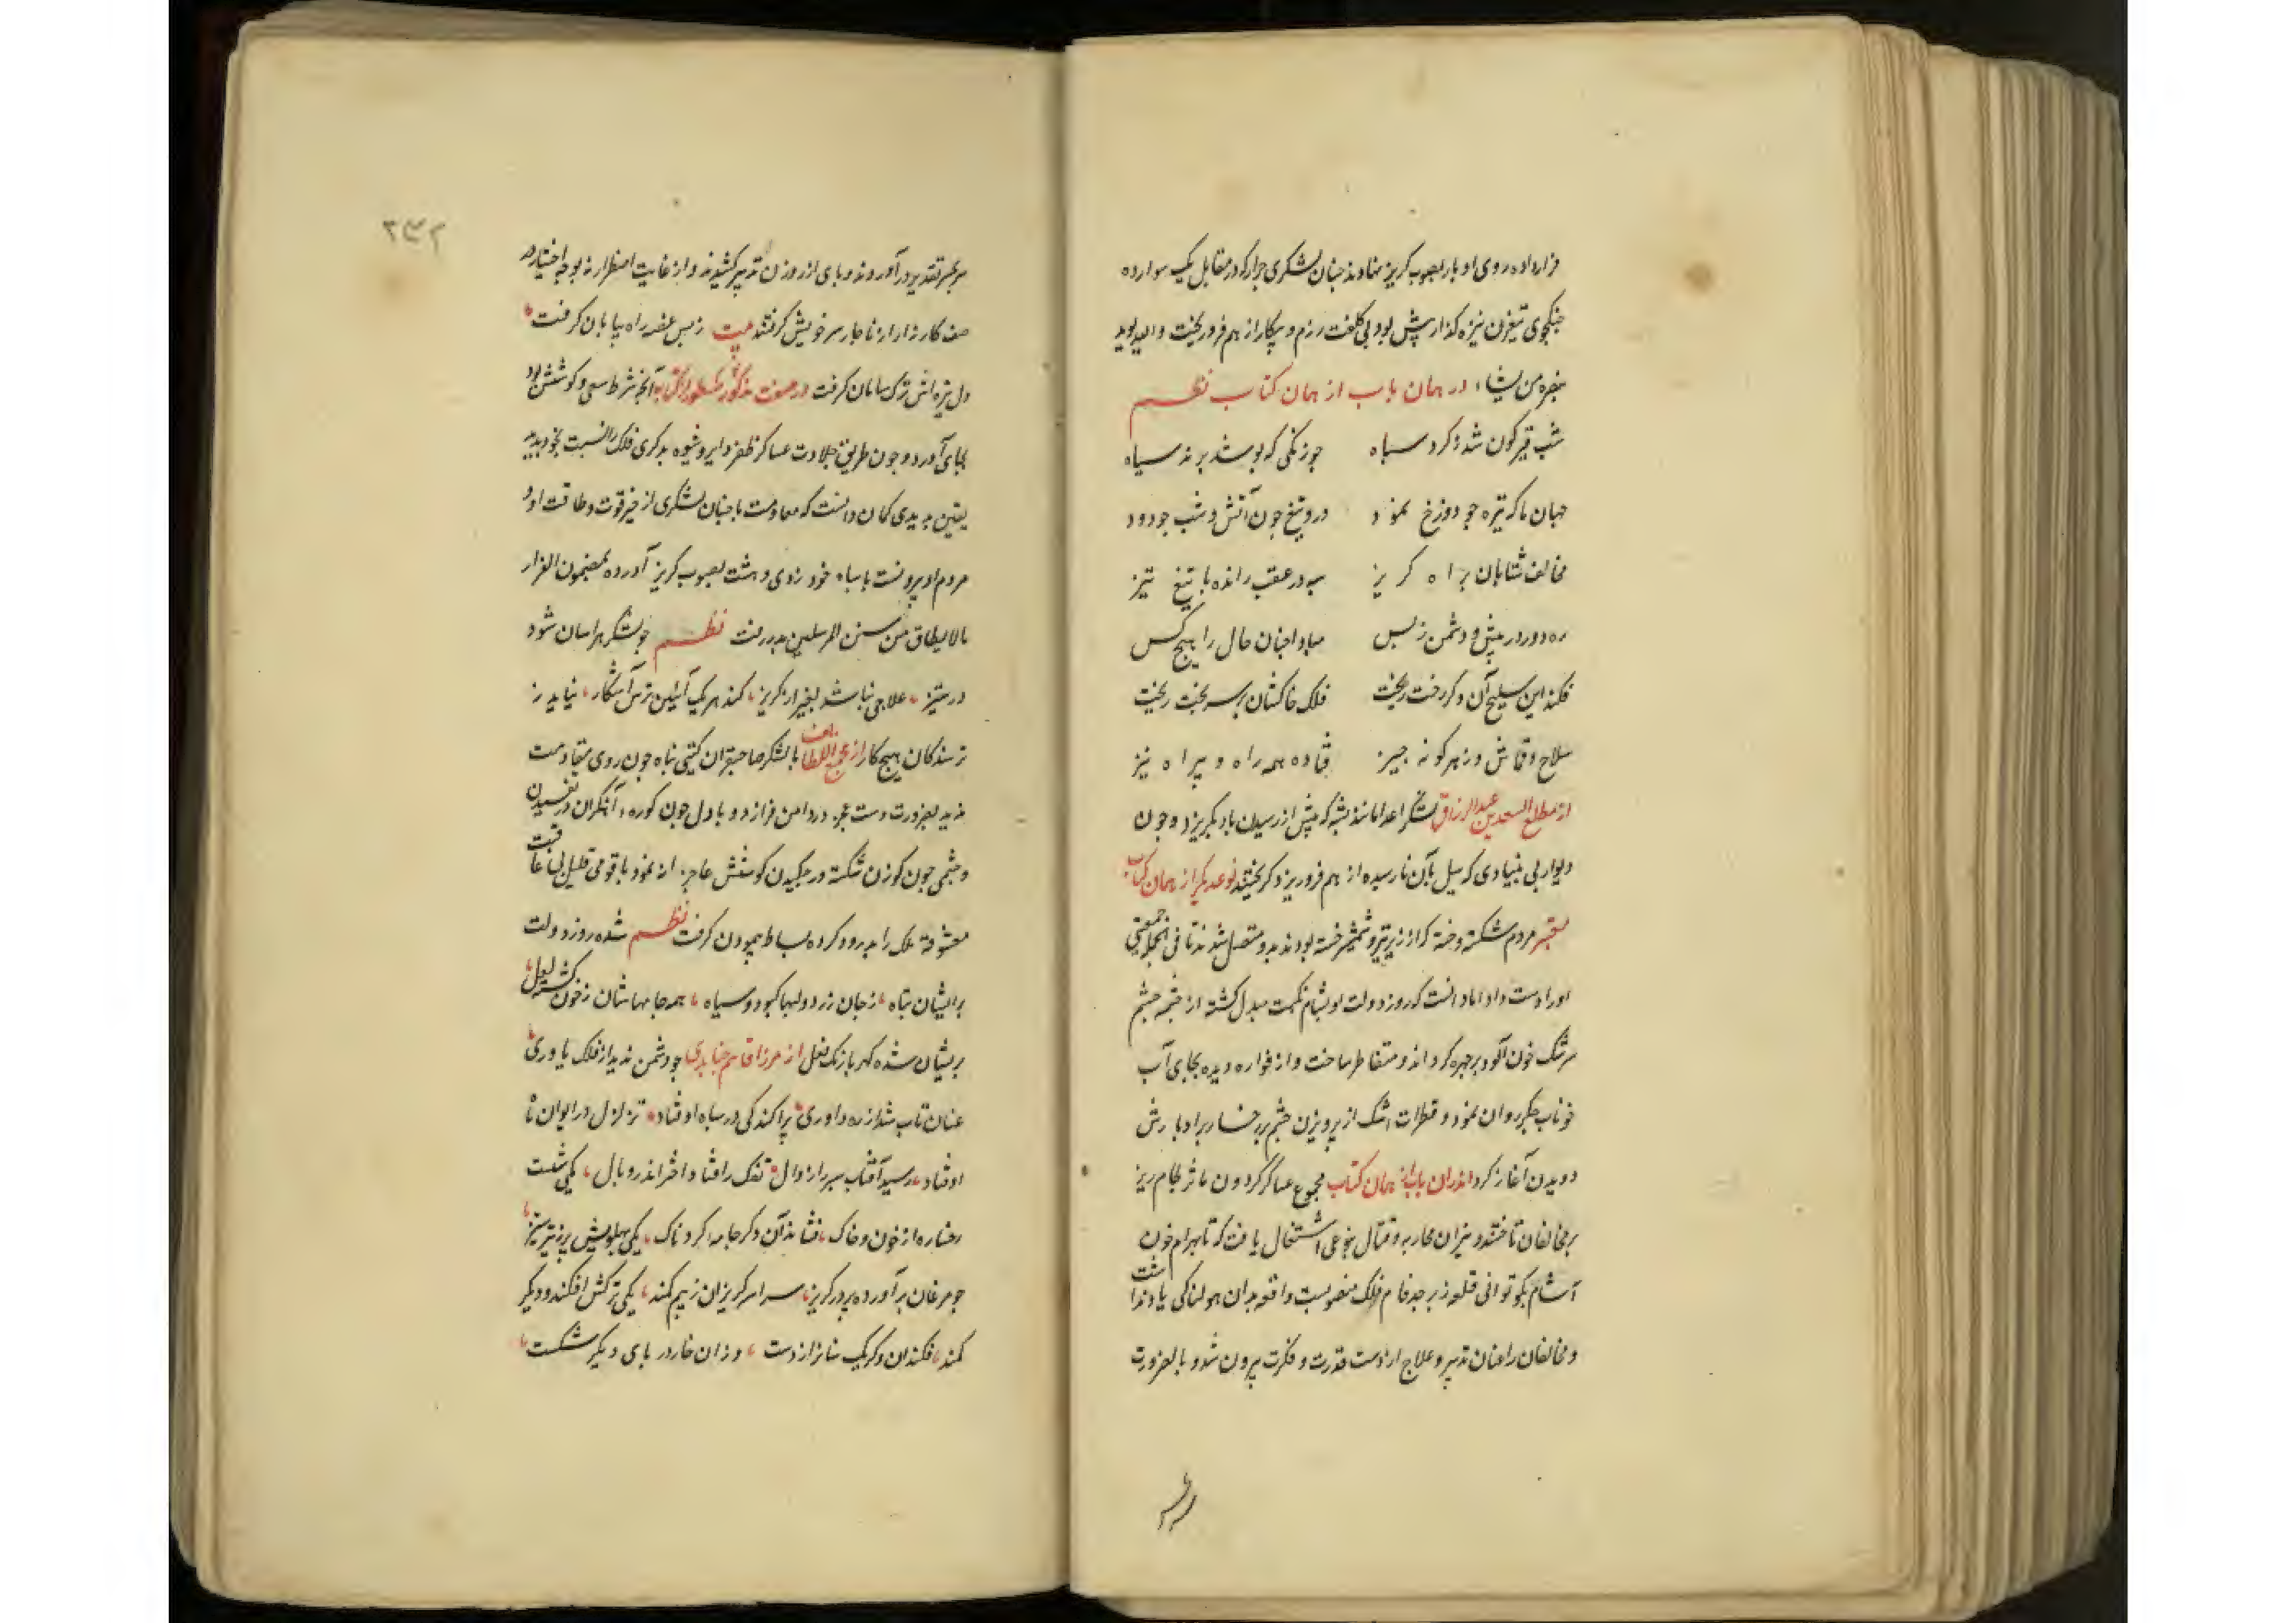 قرار داده روی ادبار بصوب کریز نهادند جنان لشکری جرار که در مقابل یک سوار ده
جنکجوی تیغ زن نیزه کذار بیش بود بی کلفت رزم و بیکار از هم فرو ریخت والله یوید
بنصره من یشاء در همان باب از همان کتاب نظم
شب قیرکون شد ز کرد سباه جو زنکی که بوشد برند سیاه
جهان تا کر تیره جو دوزخ نمود درو تیغ جون آتش و شب جو دود
مخالف شتابان براه کریز سبه در عقب رانده با تیغ تیز
ره دور در بیش و دشمن ز بس مبادا جنان حال را هیج کس
فکند این سلیح آن دکر رخت ریخت فلک خاکشان بر سر بخت ریخت
سلاح و قماش و ز هر کونه جیز فتاده همه راه و بیراه نیز
از مطلع السعدین عبدالرزاق لشکر اعدا مانند بشه که بیش از رسیدن باد بکریزد و جون
دیوار بی بنیادی که سیل بآن نارسیده از هم فرو ریزد کریختند نوعدیکر از همان کتاب
معتبر مردم شکسته و خسته که از زیر تیر و شمشیر خسته بودند بدو متصل شدند تا فی الجمله جمعیتی
او را دست داد اما دانست که روز دولت او بشام نکبت مبدل کشته از جشمه جشم
سرشک خون آلود بر جهره کرداند و متقاطر ساخت و از فواره دیده بجای آب
خوناب جکر روان نمود و قطرات اشک از برویزن جشم بر رخسار بر ادبارش
دویدن آغاز کرد اندران باب از همان کتاب مجموع عساکر کردون مآثر لجام ریز
بر مخالفان تاختند و نیران محاربه و قتال بنوعی اشتعال یافت که تا بهرام خون
آشام بکوتوالی قلعه زبرجد فام فلک منصوبست واقعه بدان هولناکی یاد نداشت
و مخالفان را عنان تدبیر و علاج از دست قدرت و فکرت بیرون شد و بالضرورت
سر بجنبر تقدیر در آوردند و بای از روزن تدبیر کشیدند و از غایت اضطرار نه بوجه اختیار در
صف کارزار از ناجار سر خویش کرفتند بیت ز بس غصه راه بیابان کرفت
دل تیره اش ترک سامان کرفت در صفت مذکور مسطور از کتاب آنجه شرط سعی و کوشش بود
بجای آورد و جون طریق جلادت عساکر ظفر و شیوه بدکری فلک را نسبت بخود بدید
یقین بدید کمان دانست که مقاومت با جنان لشکری از حیز قوت و طاقت او و
مردم او بیرونست با سباه خود روی دهشت بصوب کریز آورده بمضمون الفرار
مالایطاق من سنن المرسلین بدر رفت نظم جو لشکر هراسان شود
در ستیز علاجی نباشد بغیر از کریز کند هر یک آیین ترس آشکار نیاید ز
ترسندکان هیج کار از مجمع اللطایف با لشکر صاحبقران کیتی بناه جون روی مقاومت
ندید بضرورت دست عجز در دامن فرار زد و با دل جون کوره آهنکران در تفسیدن
و جشمی جون کوزن شکسته در جکیدن کوشش عاجزانه نمود با قومی قلیل بی عاقبت
معشوقه ملک را بدرود کرده بساط بیمودن کرفت نظم شده روز دولت
بر ایشان تباه ز جان زرد و لبها کبود و سیاه همه جامهاشان ز خون کشته لعل
بریشان شده کهر باز نک نعل از میرزا قاسم جنابدی جو دشمن ندید از فلک یاوری
عنان تاب شد از ره داوری براکندکی در سباه او فتاد تزلزل در ایوان
او فتاد رسید آفتاب سبر را زوال تفک را فتاد اختر اندر وبال یکی شست
رخساره از خون و خاک فشاند آن دکر جامه کردناک یکی بهلویش بر ز تیر ستیز
جو مرغان برآورده بر در کریز سراسر کریزان ز بیم کمند یکی ترکش افکند و دیکر
کمند فکند آن دکر یک سنانرا ز دست وزان خار در بای دیکر شکست